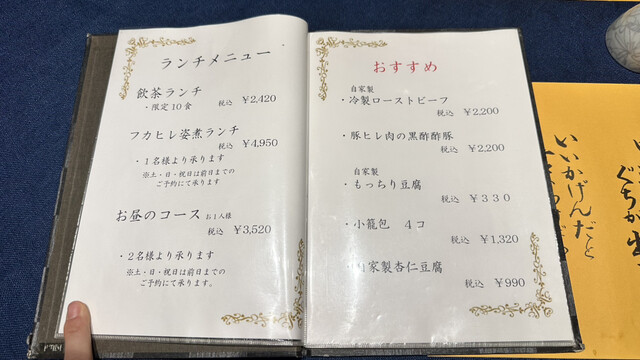 ランチメニュー
飲茶ランチ
・限定10食 税込 ¥2,420
フカヒレ姿煮ランチ
税込 ¥4,950
・1名様より承ります
※土・日・祝日は前日までの
ご予約にて承ります
お昼のコース お1人様
税込 ¥3,520
・2名様より承ります
※土・日・祝日は前日までの
ご予約にて承ります。
おすすめ
自家製
・冷製ローストビーフ
税込 ¥2,200
・豚ヒレ肉の黒酢酢豚
税込 ¥2,200
自家製
・もっちり豆腐
税込 ¥330
・小籠包 4コ
税込 ¥1,320
・自家製杏仁豆腐
税込 ¥990
いいかげんだと